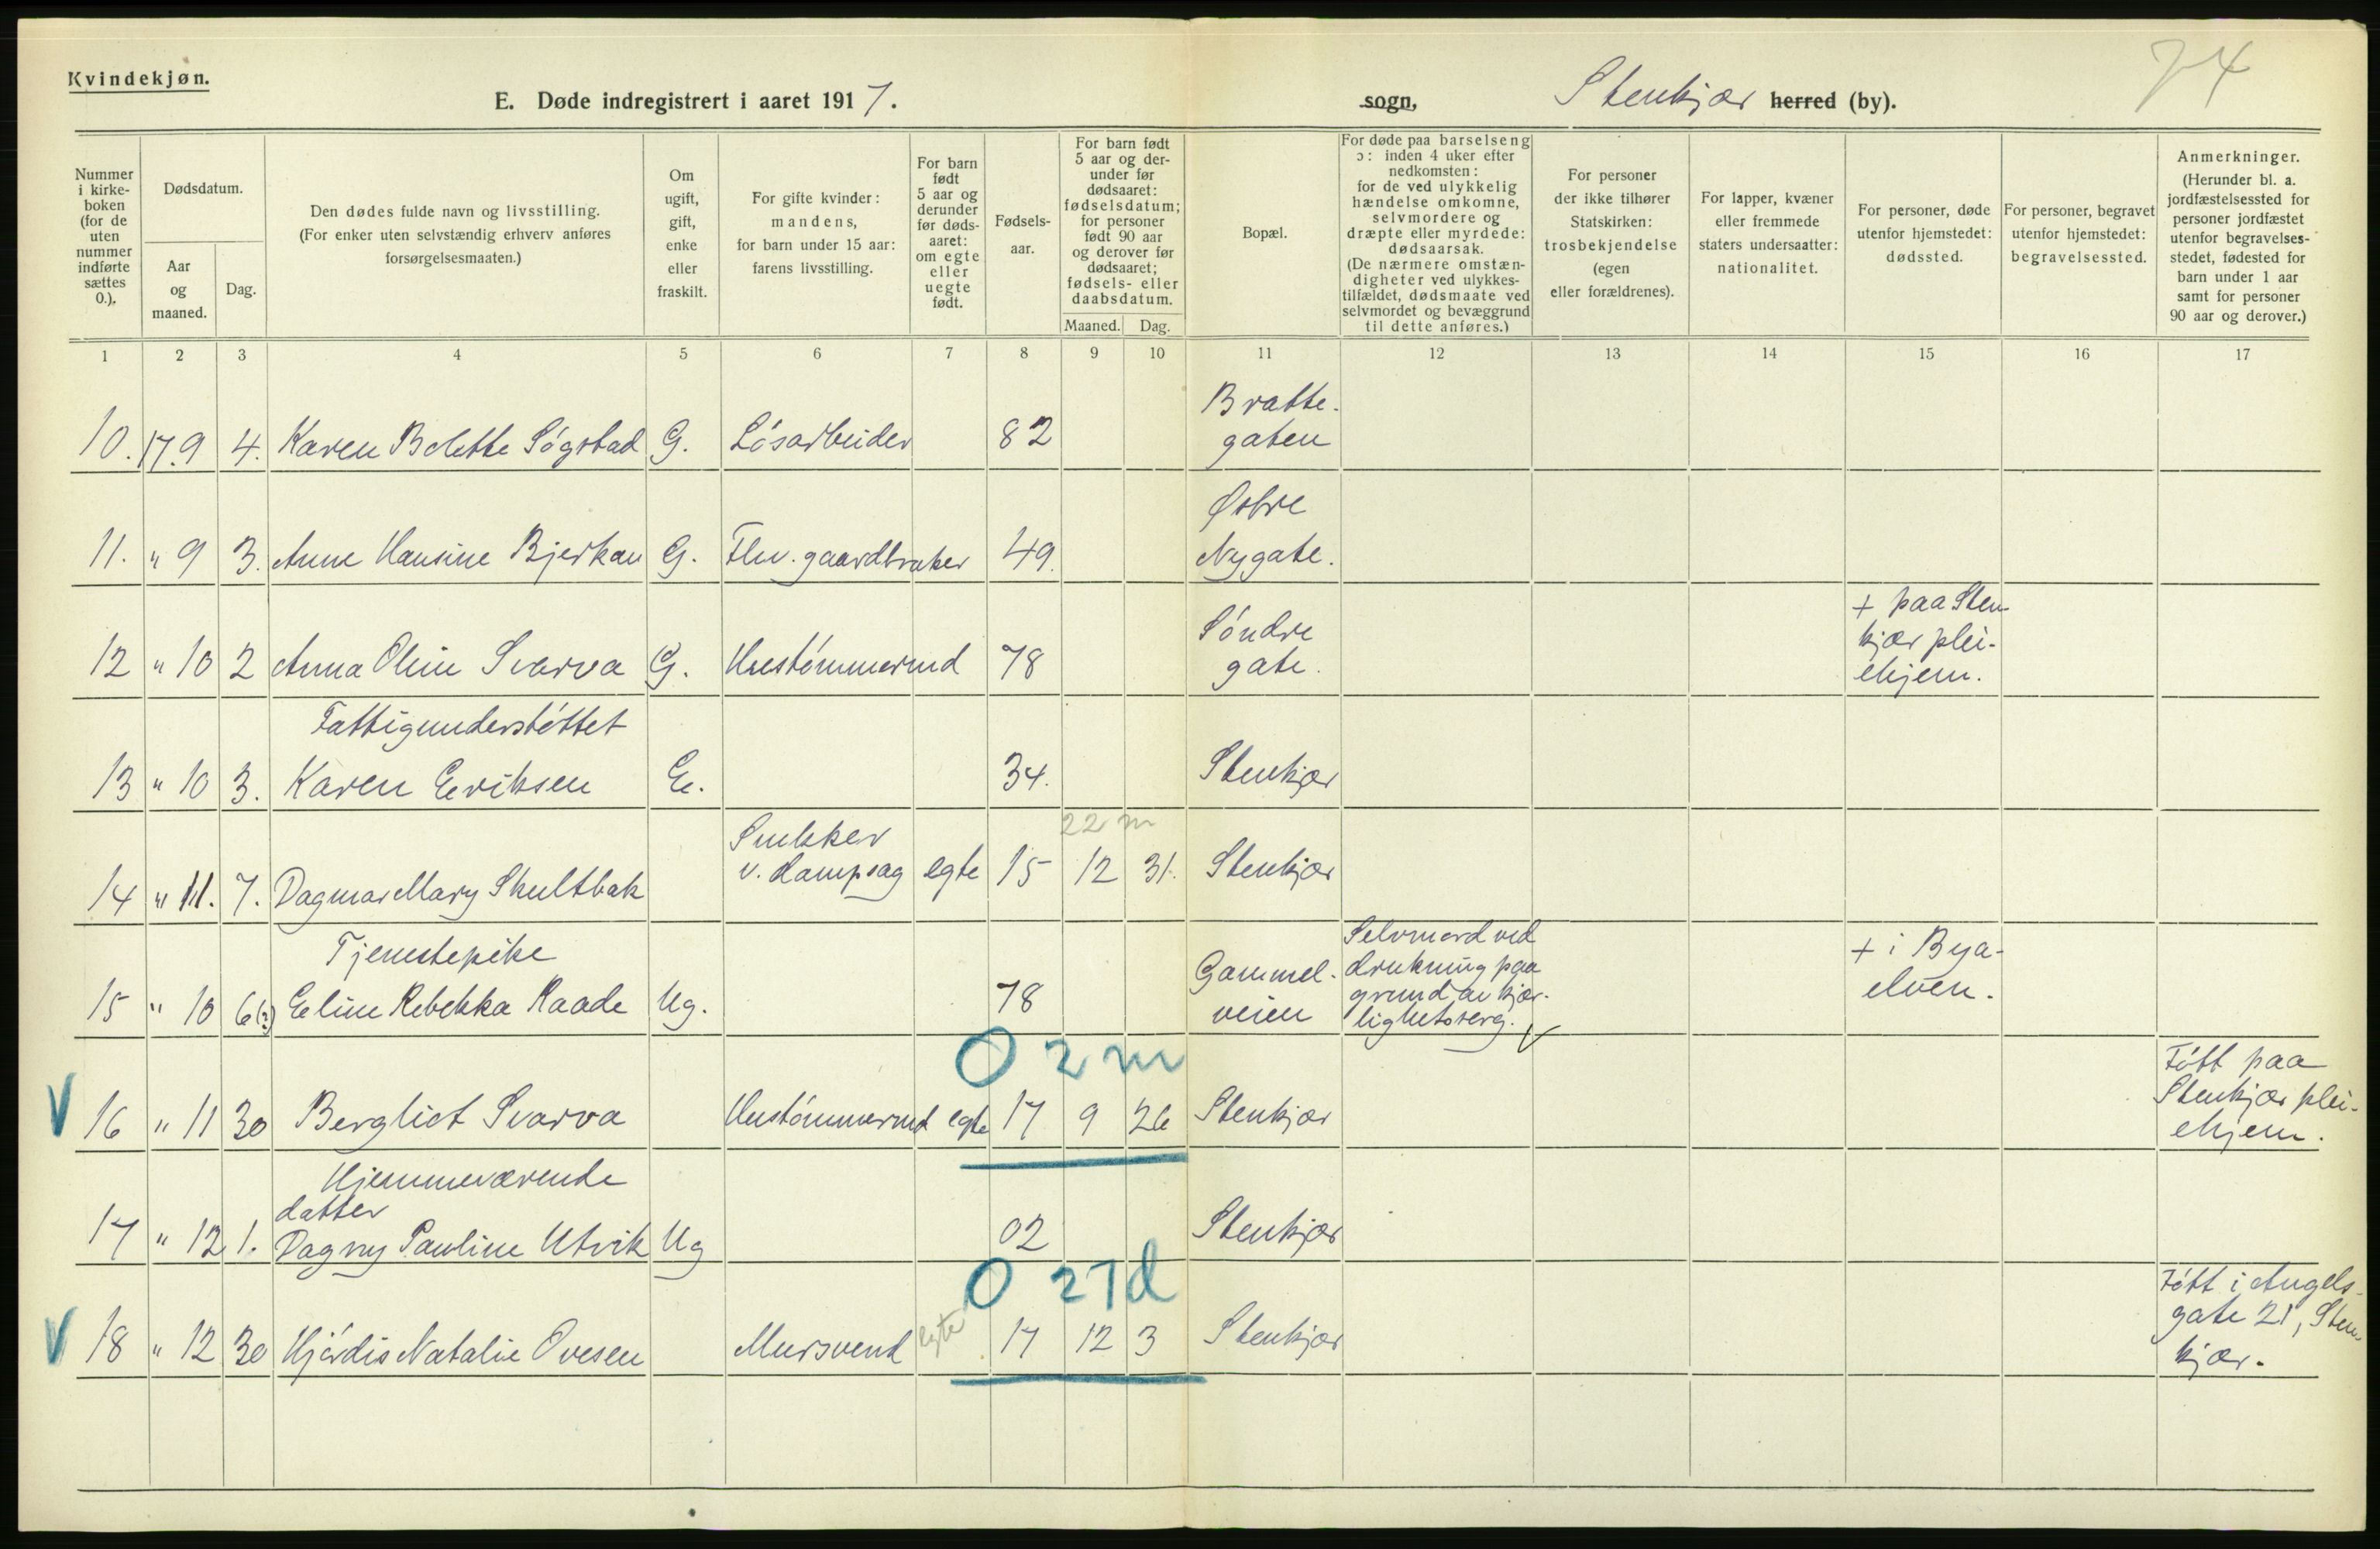 Kvindekjøn.
74
E. Døde indregistrert i aaret 1917.
sogn, Stenkjær herred (by).
Nummer i kirke-boken (for de uten nummer indførte sættes 0.).
Dødsdatum.
Aar og maaned.
Dag.
Den dødes fulde navn og livsstilling.
(For enker uten selvstændig erhverv anføres forsørgelsesmaaten.)
Om ugift, gift, enke eller fraskilt.
For gifte kvinder: mandens, for barn under 15 aar: farens livsstilling.
For barn født 5 aar og derunder før døds-aaret: om egte eller uegte født.
Fødsels-aar.
For barn født 5 aar og der-under før dødsaaret: fødselsdatum; for personer født 90 aar og derover før dødsaaret; fødsels- eller daabsdatum.
Maaned. Dag.
Bopæl.
For døde paa barselseng ɔ: inden 4 uker efter nedkomsten: for de ved ulykkelig hændelse omkomne, selvmordere og dræpte eller myrdede: dødsaarsak. (De nærmere omstæn-digheter ved ulykkes-tilfældet, dødsmaate ved selvmordet og bevæggrund til dette anføres.)
For personer der ikke tilhører Statskirken: trosbekjendelse (egen eller forældrenes).
For lapper, kvæner eller fremmede staters undersaatter: nationalitet.
For personer, døde utenfor hjemstedet: dødssted.
For personer, begravet utenfor hjemstedet: begravelsessted.
Anmerkninger.
(Herunder bl. a. jordfæstelsessted for personer jordfæstet utenfor begravelses-stedet, fødested for barn under 1 aar samt for personer 90 aar og derover.)
1 2 3 4 5 6 7 8 9 10 11 12 13 14 15 16 17
10. 17.9 4. Karen Bolette Søgstad G. Løsarbeider 82 Bratte-
gaten
11. " 9 3. Anne Hansine Bjerkan G. Flv. gaardbruker 49. Østre
Nygate.
12 " 10 2 Anna Oline Svarva G. Hustømmermd 78 Søndre
gate.
+ paa Sten-
kjær plei-
ehjem.
Fattigunderstøttet
13 " 10 3. Karen Eriksen E. 34. Stenkjær
22 m
14 " 11. 7. Dagmar Mary Skultbak Snekker
v. dampsag egte 15 12 31. Stenkjær
Tjenestepike
15 " 10 6(?) Eline Rebekka Raade Ug. 78 Gammel-
veien
Selvmord ved
drukning paa
grund av kjær-
lighetssorg.
+ i Bya-
elven.
0 2 m
V 16 " 11 30 Bergliot Svarva Hustømmermd egte 17 9 26 Stenkjær
Født paa
Stenkjær plei-
ehjem.
Hjemmeværende
datter
17 " 12 1. Dagny Pauline Utvik Ug 02 Stenkjær
0 27d
V 18 " 12 30 Hjørdis Natalie Ovesen Mursvend egte 17 12 3 Stenkjær
Født i Angels-
gate 21, Sten-
kjær.